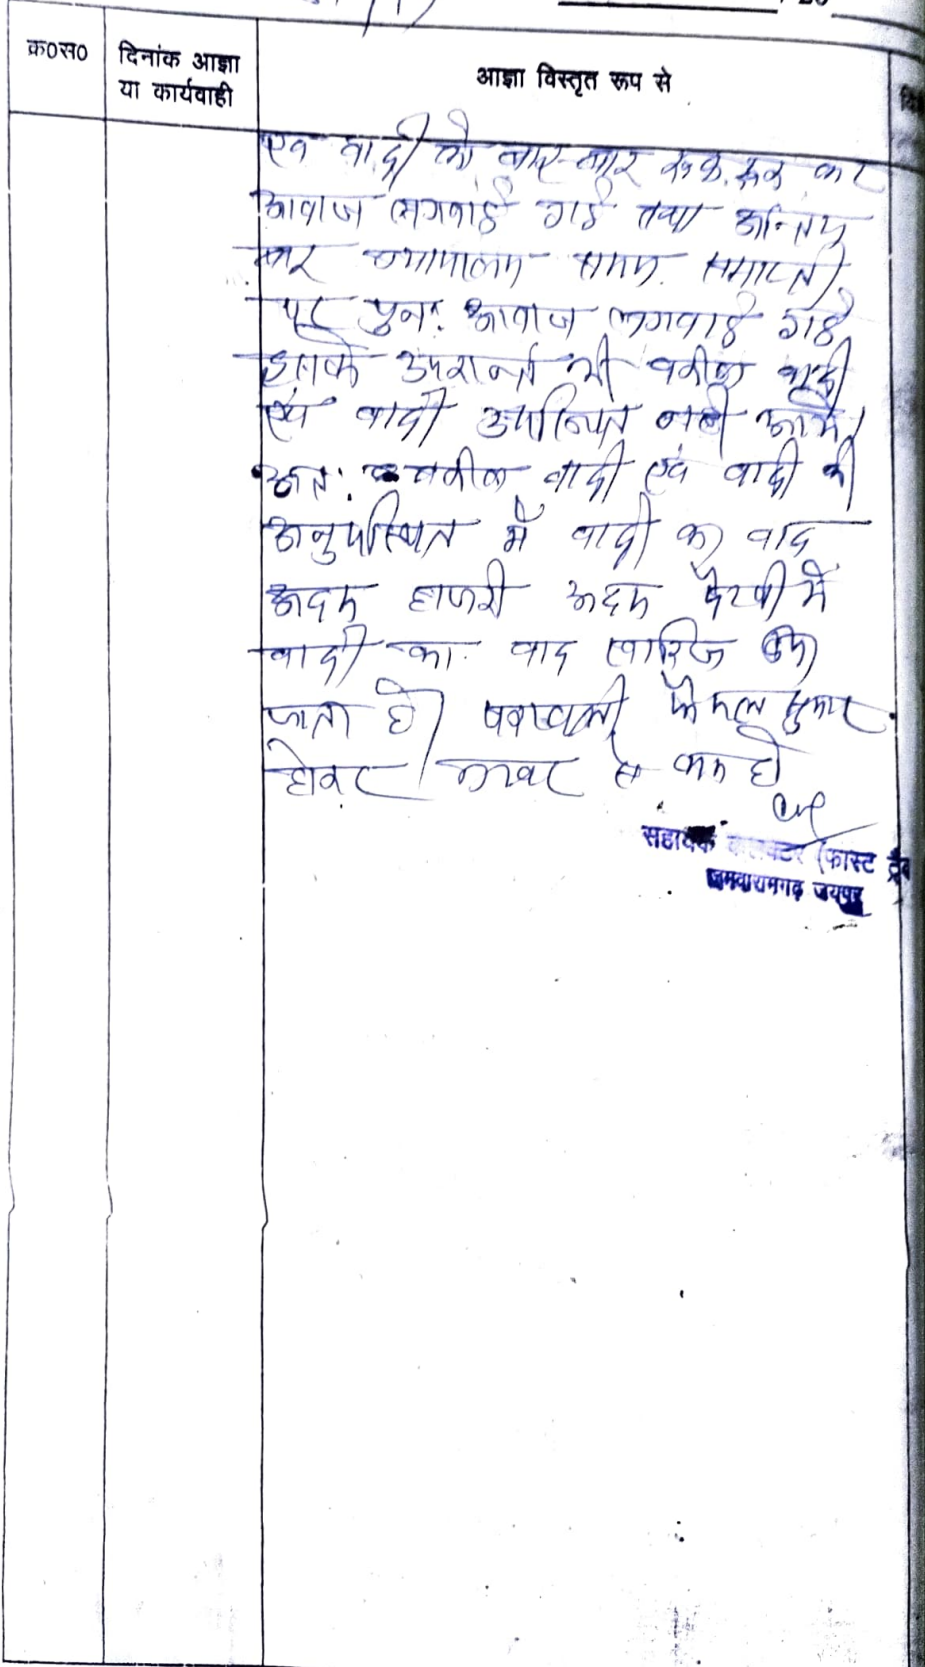 क्र०स०
दिनांक आज्ञा
या कार्यवाही
आज्ञा विस्तृत रूप से
एवं वादी को बार-बार रूक रूक कर
आवाज लगवाई गई तथा अन्तिम
बार न्यायालय समय समाप्ती
पर पुनः आवाज लगवाई गई
इसके उपरान्त भी वकील वादी
एवं वादी उपस्थित नही आये।
अतः वकील वादी एवं वादी की
अनुपस्थित में वादी का वाद
अदम हाजरी अदम पैरवी में
वादी का वाद खारिज किया
जाता है। पत्रावली फैसल शुमार
होकर नम्बर से कम हो
सहायक कलक्टर (फास्ट ट्रैक
जमवारामगढ़ जयपुर